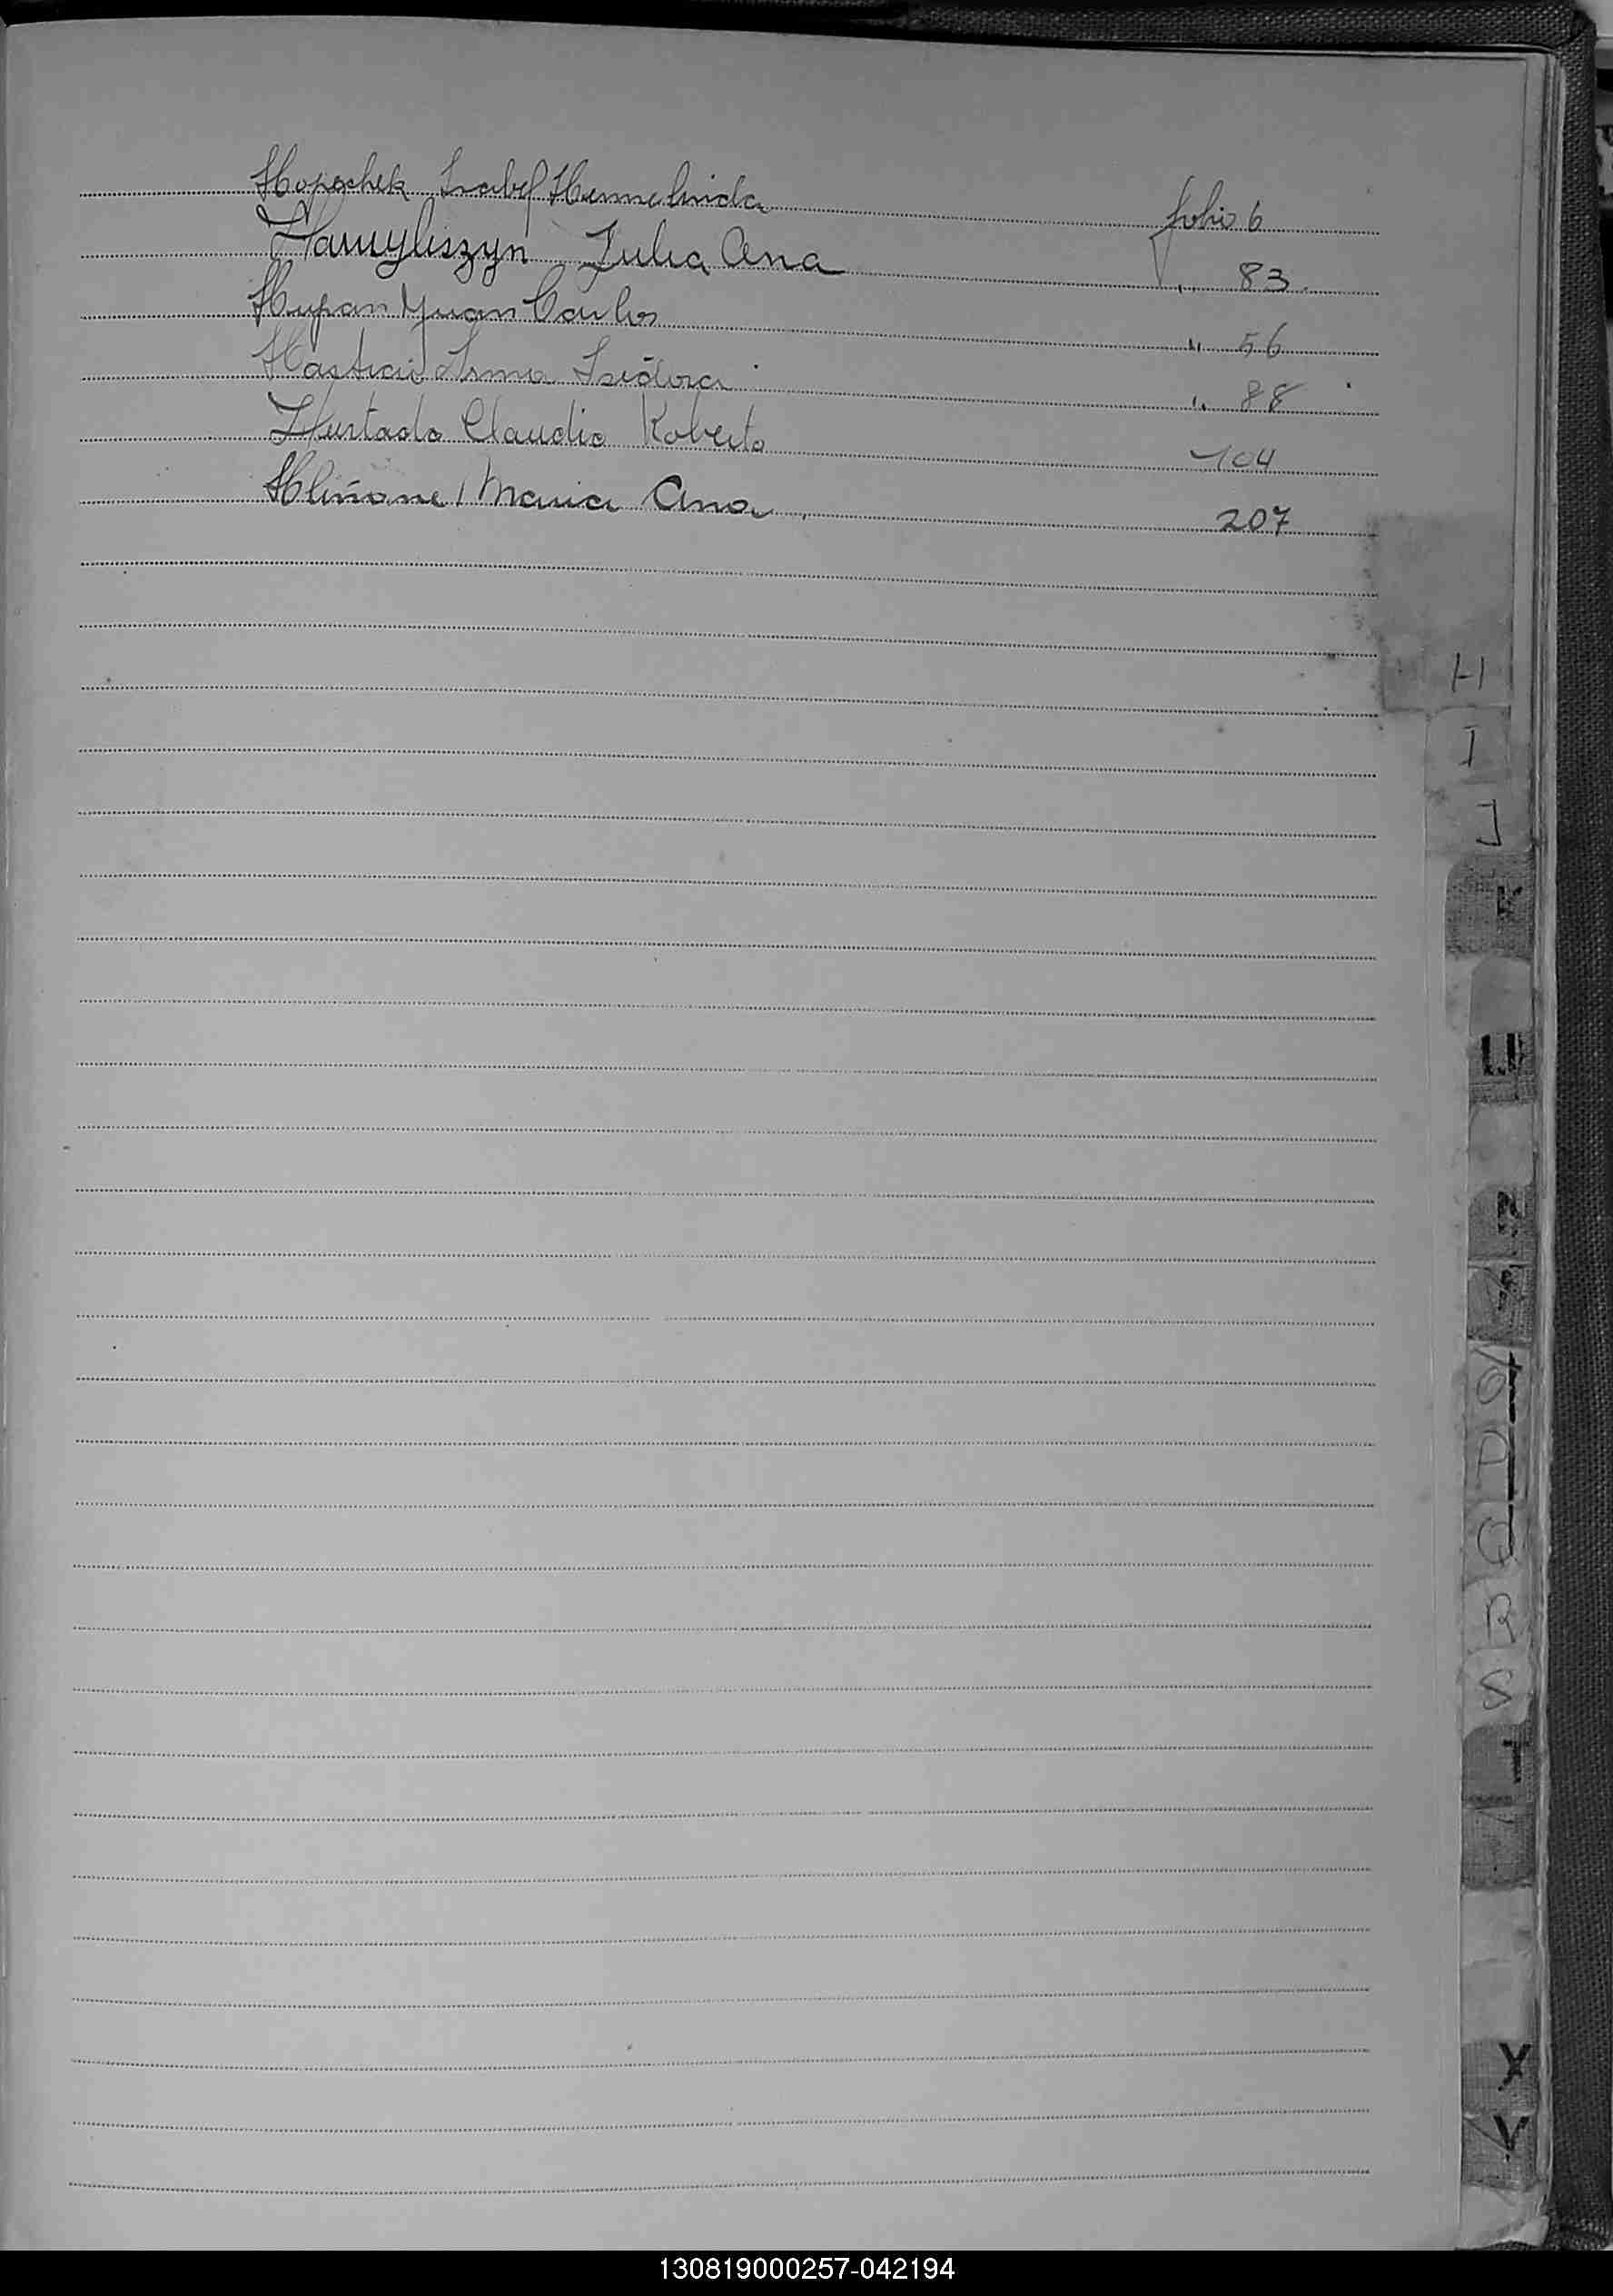 Hopochek Isabel Hermelinda folio 6
Hamyliszyn Julia Ana " 83
Hupan Juan Carlos " 56
Irma Isidora " 88
Hurtado Claudio Roberto 104
Maria Ana 207
H
I
J
K
O
P
Q
R
S
T
X
V
130819000257-042194